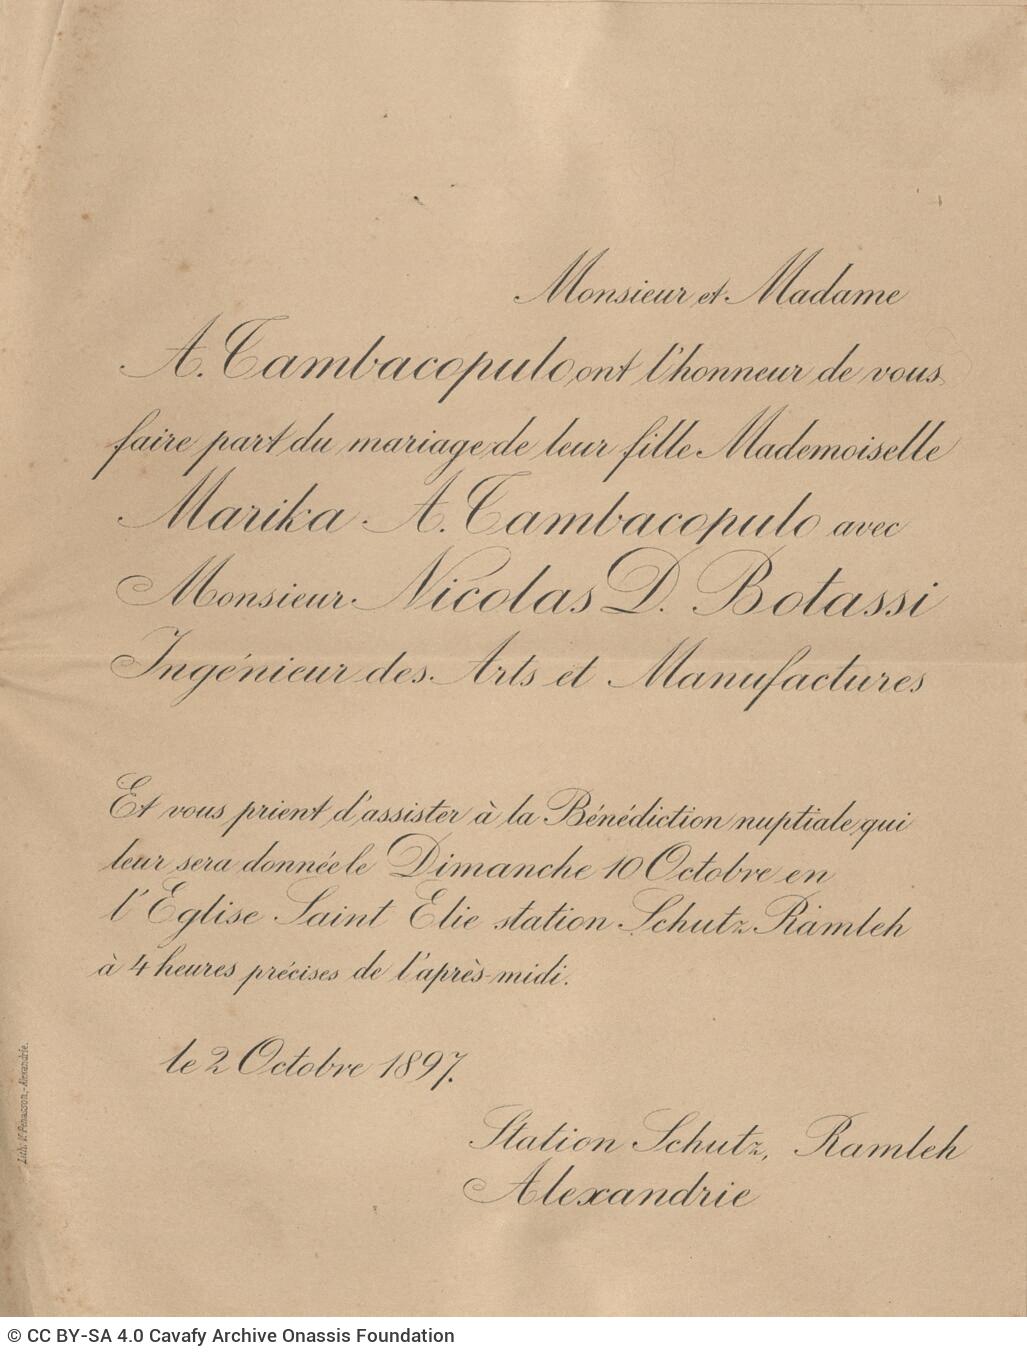 Monsieur et Madame
A. Tambacopulo ont l'honneur de vous
faire part du mariage de leur fille Mademoiselle
Marika A. Tambacopulo avec
Monsieur Nicolas D. Botassi
Ingénieur des Arts et Manufactures
Et vous prient d'assister à la Bénédiction nuptiale qui
leur sera donnée le Dimanche 10 Octobre en
l'Eglise Saint Elie station Schutz Ramleh
à 4 heures précises de l'après-midi.
le 2 Octobre 1897.
Station Schutz, Ramleh
Alexandrie
Lith. V. Penasson, - Alexandrie.
© CC BY-SA 4.0 Cavafy Archive Onassis Foundation